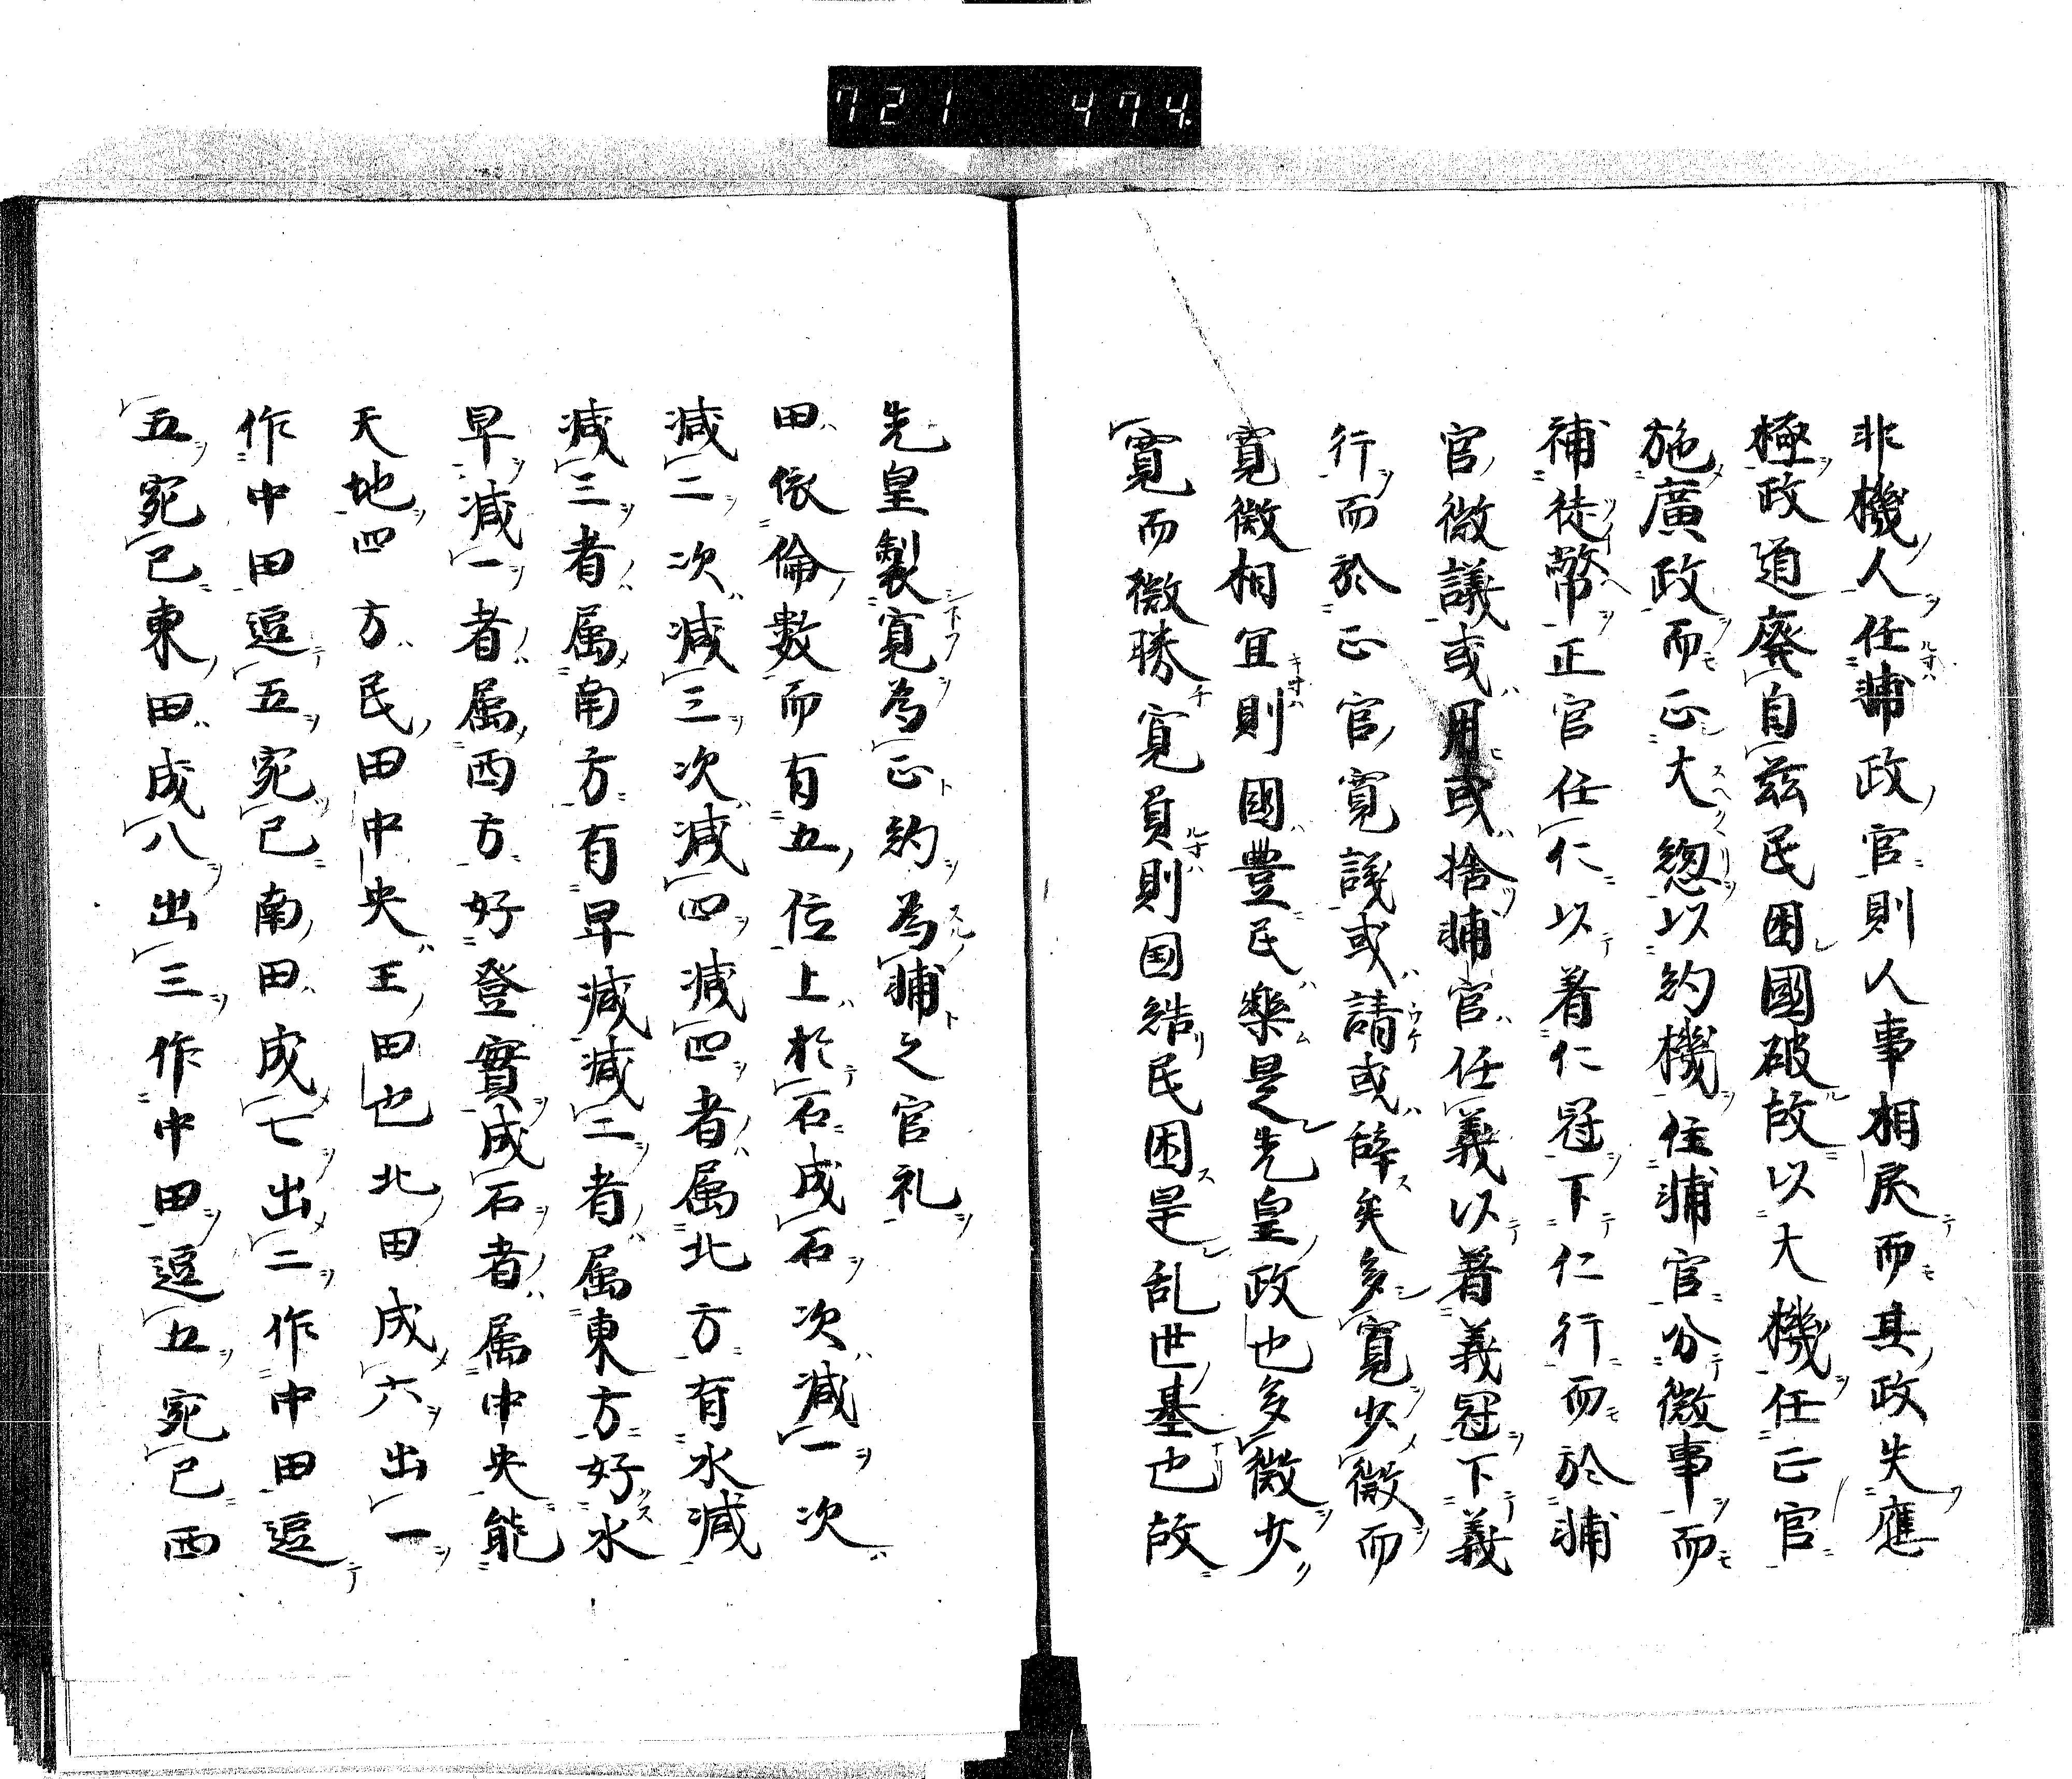 721 474.
非機人任補政官則人事相戻而其政失應
極政道廢自茲民困國破故以大機任正官
施廣政而正大惣以約機任補官分微事而
補徒幣正官任仁以着仁冠下仁行而於補
官微議或用或捨補官任義以着義冠下義
行而於正官寛議或請或辞矣多寛少微而
寛微相宜則國豊民楽是先皇政也多微少
寛而微勝寛負則国結民困是乱世基也故
先皇製寛為正約為補之官礼
田依倫數而有五位上於石成石次減一次
減二次減三次減四減四者属北方有水減
減三者属南方有早減減二者属東方好水
早減一者属西方好登實成石者属中央能
天地四方民田中央王田也北田成六出一
作中田逗五宛己南田成七出二作中田逗
五宛己東田成八出三作中田逗五宛己西